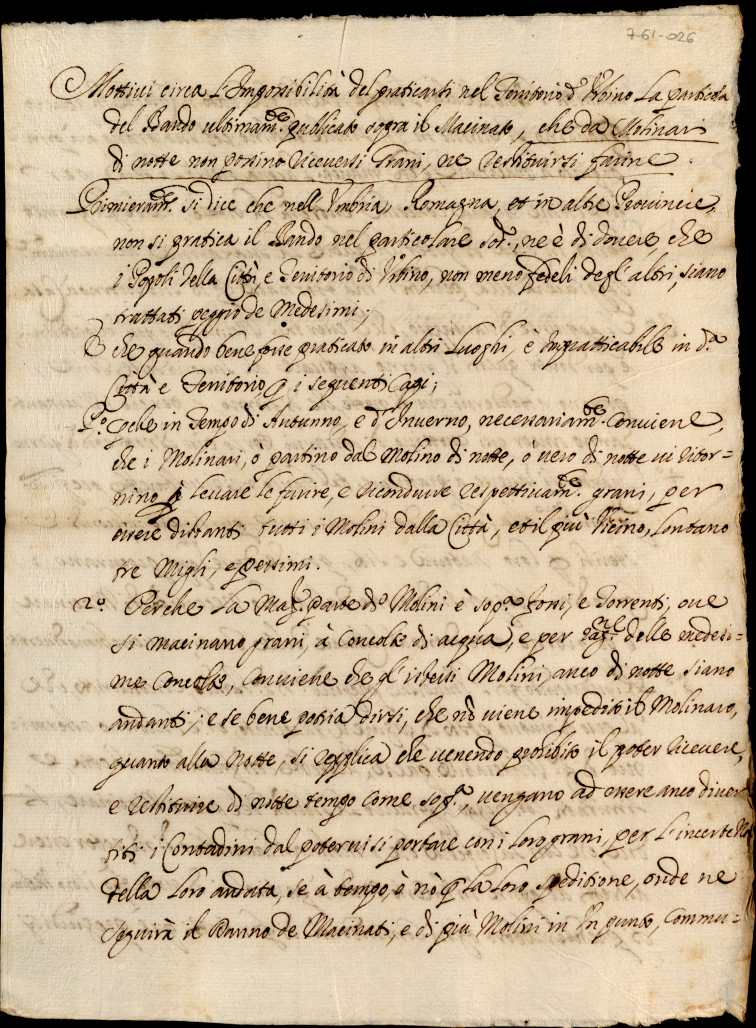 7-61-026
Mottivi circa L'Impossibilità del praticarsi nel Territorio d'Urbino La particola
del Bando ultimam.te publicato sopra il Macinato, che da Molinari
di notte non possino riceversi Grani, ne restituirsi farine.
Primieram.te si dice che nell'Umbria, Romagna, et in altre Provincie,
non si pratica il Bando nel particolare sod.o, ne è di dovere, che
i Popoli della Città, e Territorio di Urbino, non meno fedeli degl'altri, siano
trattati peggio de Medesimi;
E che quando bene fosse praticato in altri Luoghi, è Impratticabile in d.a
Città e Territorio, p i seguenti Capi;
P.o Che in Tempo di Autunno, e d'Inverno, necessariam.te conviene,
che i Molinari, ò partino dal Molino di notte, ò vero di notte vi ritor=
nino p levare le farine, e ricondurre respettivam.te grani, per
essere distanti tutti i Molini dalla Città, et il più Vicino, Lontano
tre Migli, e pessimi.
2.o Perche La Mag.r Parte di Molini è sop.a fossi, e Torrenti, ove
si macinano grani, à Concolte di acqua, e per delle medesi=
me Concolte, conviene che gl'istessi Molini, anco di notte siano
andanti; e se bene potria dirsi, che nò viene impedito il Molinaro,
quanto alla Notte, si replica che venendo prohibito il poter ricevere,
e restituire di notte tempo come sop.a, vengano ad essere anco diver
titi i Contadini dal potervisi portare con i loro grani, per L'incerte
della Loro andata, se à tempo, ò nò p La Loro speditione, onde ne
seguirà il Danno de Macinati, e di più Molini in Un punto, commu=